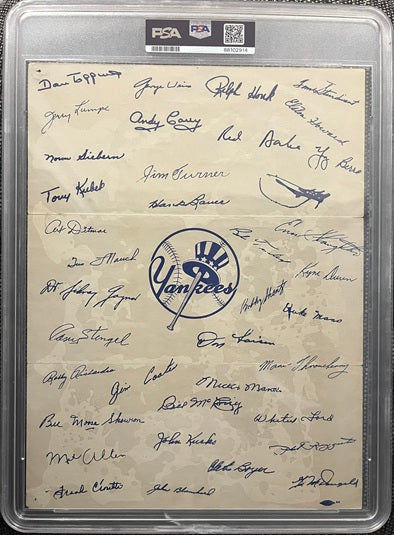 PSA PSA
88102914
Dan Topping George Weiss Ralph Houk
Jerry Lumpe Andy Carey Elston Howard
Red Yogi Berra
Norm Siebern Jim Turner
Tony Kubek Hank Bauer
Art Ditmar Enos Slaughter
Dr Sidney Gaynor Ryne Duren
Yankees
Bobby Shantz Duke Maas
Casey Stengel Don Larsen
Bobby Richardson Marv Throneberry
Jim Coates Mickey Mantle
Bill Moose Skowron Whitey Ford
John Kucks
Mel Allen Phil Rizzuto
Clete Boyer Gil McDougald
Frank Crosetti John Blanchard